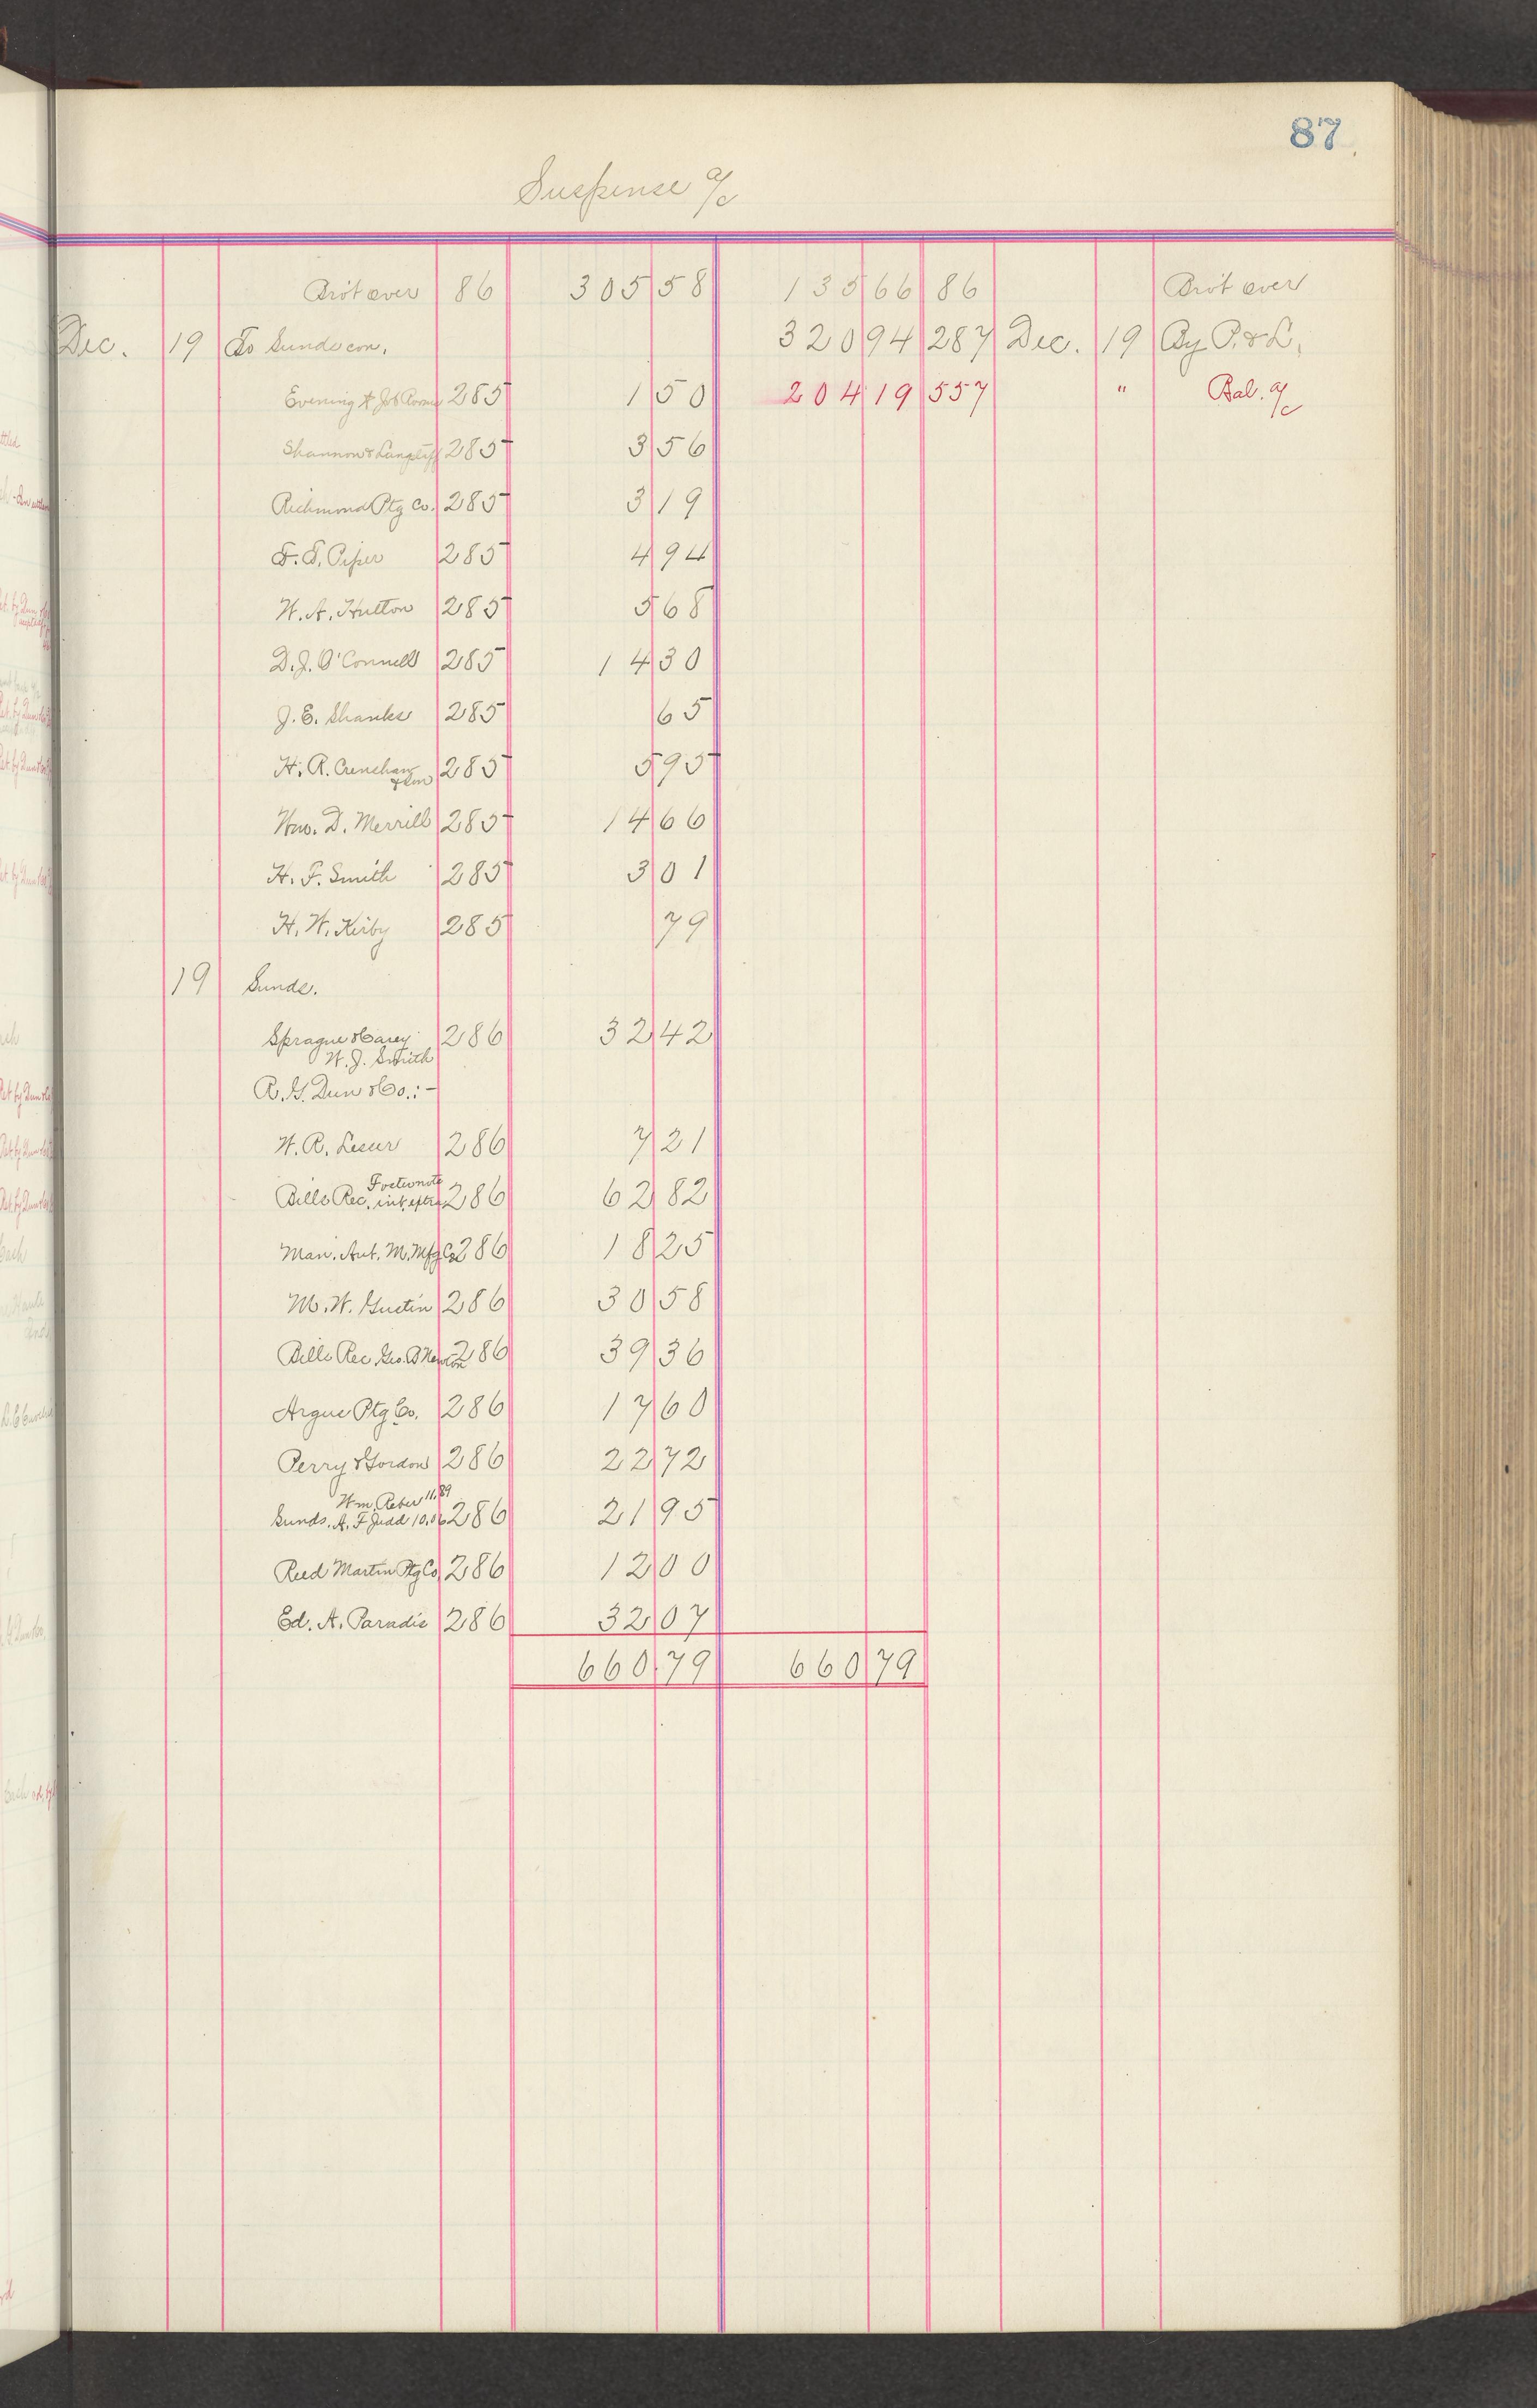 87
Suspense a/c
Bro't over 86 305 58 135 66 86 Bro't over
Dec. 19 To Sunds con. 320 94 287 Dec. 19 By P. & L.
Evening & Job Rooms 285 1 50 204 19 557 " Bal. a/c
Shannon & 285 3 56
Richmond Ptg Co. 285 3 19
F. S. Piper 285 4 94
W. A. Hutton 285 5 68
D. J. O'Connell 285 14 30
J. E. Shanks 285 65
H. R. Crenshaw & Son 285 5 95
Wm. D. Merrill 285 14 66
H. F. Smith 285 3 01
H. W. Kirby 285 79
19 Sunds.
Sprague & Carey 286 32 42
W. J. Smith
R. G. Dun & Co.: -
W. R. Lesur 286 7 21
Bills Rec. 286 62 82
Man. Aut. M. Mfg Co 286 18 25
M. W. Gustin 286 30 58
Bills Rec Geo. B Newton 286 39 36
Argus Ptg Co. 286 17 60
Perry & Gordon 286 22 72
Wm. Reber 11.89
Sunds. A. F Judd 10.06 286 21 95
Reed Martin Ptg Co 286 12 00
Ed. A. Paradis 286 32 07
660 79 660 79